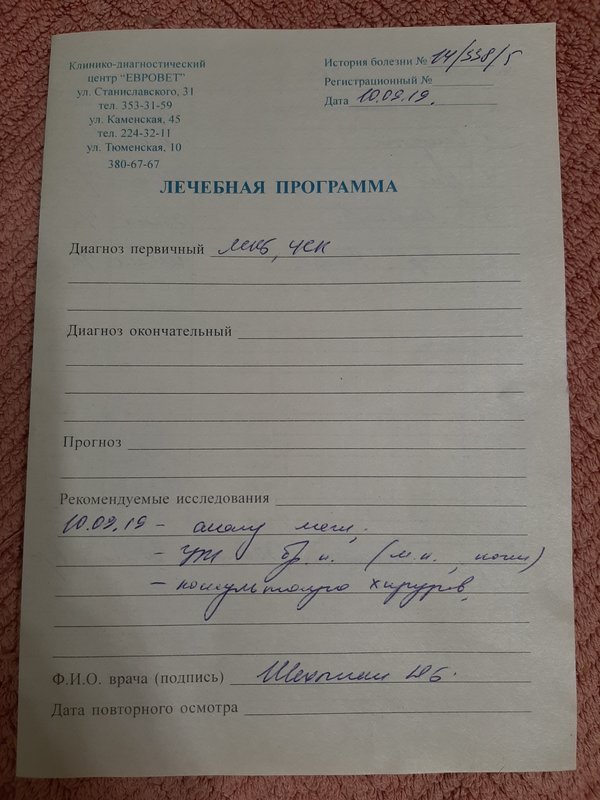 Клинико-диагностический
центр "ЕВРОВЕТ"
ул. Станиславского, 31
тел. 353-31-59
ул. Каменская, 45
тел. 224-32-11
ул. Тюменская, 10
380-67-67
История болезни № 14/338/5
Регистрационный №
Дата 10.09.19.
ЛЕЧЕБНАЯ ПРОГРАММА
Диагноз первичный МКБ, ЧСК
Диагноз окончательный
Прогноз
Рекомендуемые исследования
10.09.19 - анализ мочи.
- УЗИ бр. п. (м.п., почки)
- консультация хирургов.
Ф.И.О. врача (подпись)
Дата повторного осмотра